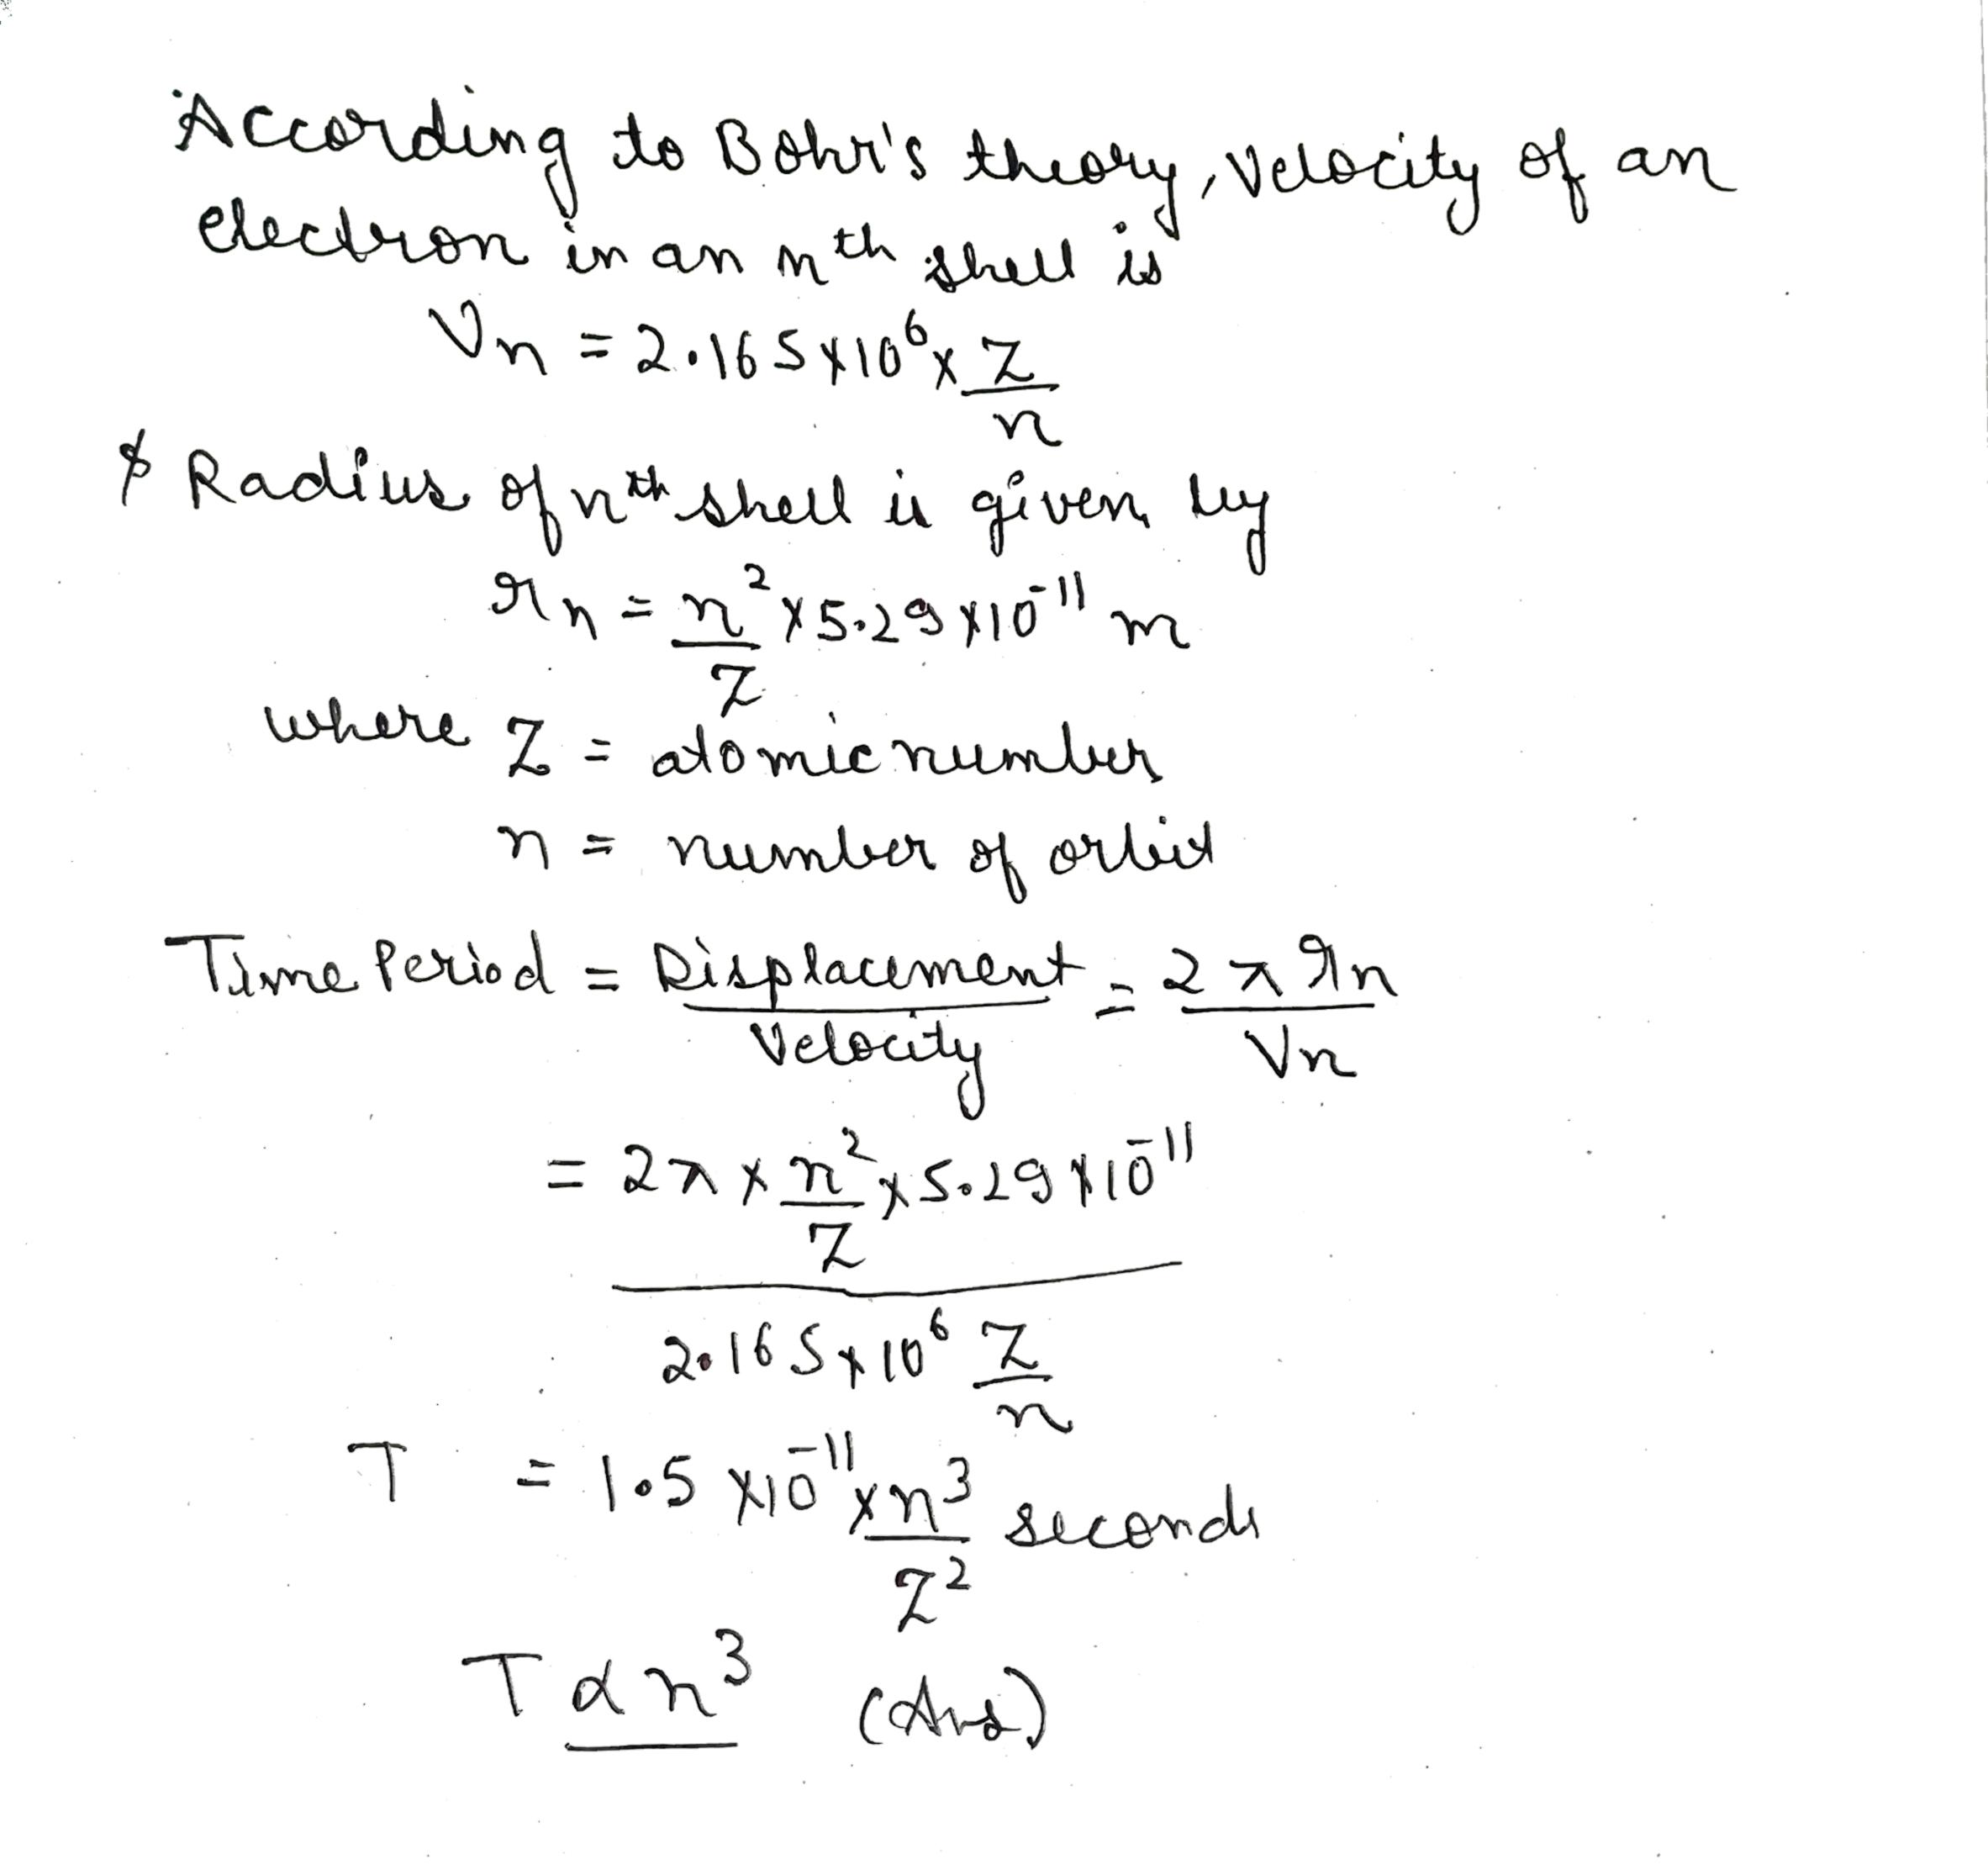 According to Bohr's theory, velocity of an
electron in an nth shell is
Vn = 2.165×10⁶ × Z/n
& Radius of nth shell is given by
rn = n²/Z × 5.29×10⁻¹¹ m
where Z = atomic number
n = number of orbit
Time Period = Displacement/Velocity = 2πrn/Vn
= 2π × n²/Z × 5.29×10⁻¹¹
2.165×10⁶ Z/n
T = 1.5 ×10⁻¹¹ × n³/Z² seconds
T α n³ (Ans)